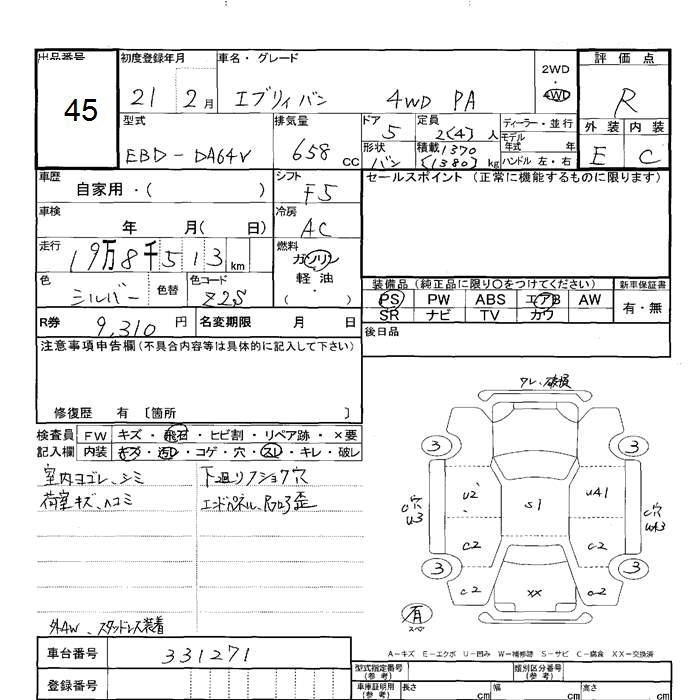 出品番号 45
初度登録年月 21 2月
車名・グレード エブリィバン 4WD PA
2WD
4WD
評価点 R
外装 内装
E C
型式 EBD-DA64V
排気量 658 cc
ドア 5
定員 2(4)人
形状 バン
積載 1370 (1380) kg
ディーラー・並行
モデル年式 年
ハンドル 左・右
車歴 自家用・( )
シフト F5
セールスポイント (正常に機能するものに限ります)
車検 年 月( 日)
冷房 AC
走行 19万8千513km
燃料 ガソリン 軽油・( )
色 シルバー 色替
色コード Z2S
装備品 (純正品に限り○をつけてください)
新車保証書
PS PW ABS エアB AW
有・無
SR ナビ TV カワ
R券 9,310円
名変期限 月 日
後日品
注意事項申告欄 (不具合内容等は具体的に記入して下さい)
修復歴 有 〔箇所 〕
検査員 FW キズ・飛石・ヒビ割・リペア跡・×要
記入欄 内装 キズ・汚レ・コゲ・穴・スレ・キレ・破レ
室内ヨゴレ、シミ
荷室キズ、ヘコミ
下廻り
エンドパネル
歪
ワレ、破損
3 3
U2 S1 U41
C穴 U3
C穴
C2 C2
3 3
C2 XX C2
有
スペア
外AW、スタッドレス装着
A-キズ E-エクボ U-凹み W-補修跡 S-サビ C-腐食 XX-交換済
車台番号 331271
登録番号
型式指定番号 (参考)
類別区分番号 (参考)
車庫証明用 (参考) 長さ cm 幅 cm 高さ cm